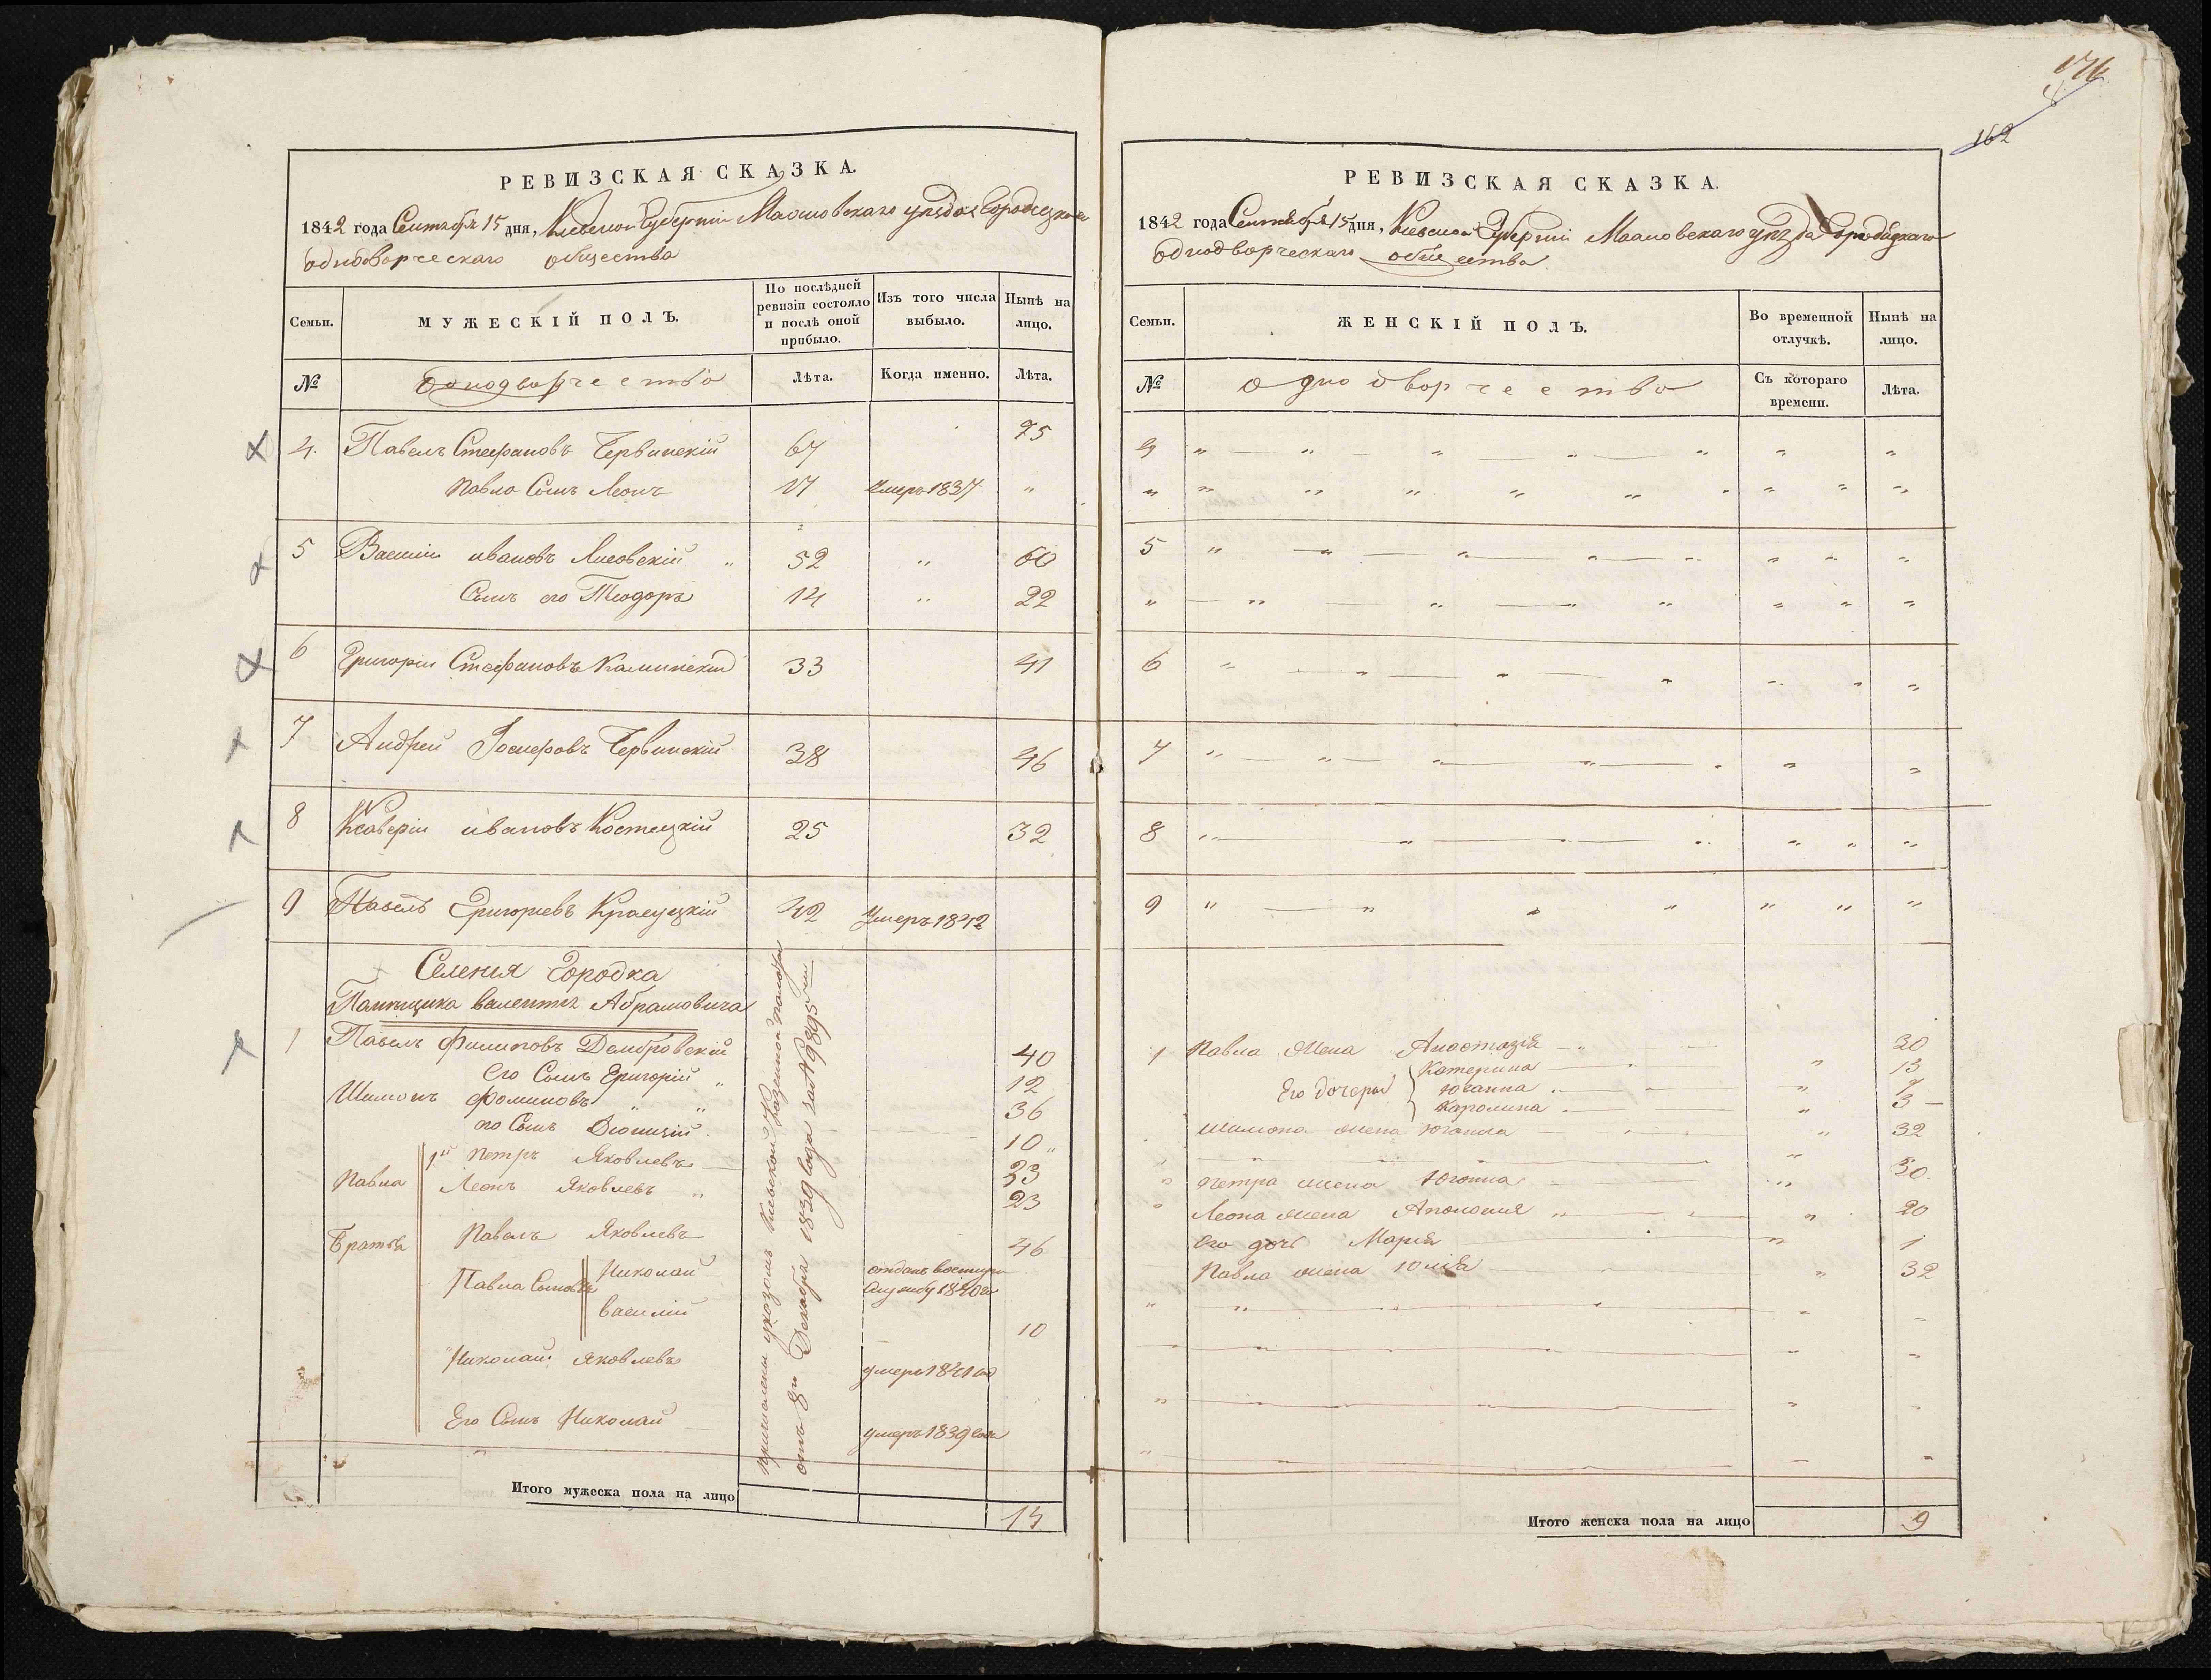 РЕВИЗСКАЯ СКАЗКА.
1842 года Сентября 15 дня, Киевской Губерніи Махновскаго уезда Городецкаго
однодворческаго общества
Семьи.
МУЖЕСКІЙ ПОЛЪ.
По послѣдней ревизіи состояло и послѣ оной прибыло.
Изъ того числа выбыло.
Нынѣ на лицо.
№
Однодворчество
Лѣта.
Когда именно.
Лѣта.
4. Павелъ Стефановъ Червинскій 67 75
Павла Сынъ Леонъ 17 Умеръ 1837 "
5 Василій ивановъ Лисовскій " 52 " 60
Сынъ его Теодоръ 14 " 22
6 Григорій Стефановъ Каминскій 33 41
7 Андрей Іосифовъ Червинскій 38 46
8 Ксаверій ивановъ Костецкій 25 32
9 Павелъ Григорьевъ Красуцкій 42 Умеръ 1842
Селенія Городка
Помѣщика валентія Абрамовича
1 Павелъ Филиповъ Домбровскій 40
Его Сынъ Григорій " 12
Шимонъ Фоминовъ " " 36
его Сынъ Діонизій 10 "
Павла Братья
1й Петръ Яковлевъ 33
Леонъ Яковлевъ " 23
Павелъ Яковлевъ 46
Павла Сыновья Николай отданъ Службу 1840
василій 10
Николай Яковлевъ умеръ 1841
Его Сынъ Николай умеръ 1839 года
причислены указомъ Киевской Казенной палаты
отъ 8го Декабря 1839 года за № 9895м
Итого мужеска пола на лицо 15
176
162
РЕВИЗСКАЯ СКАЗКА.
1842 года Сентября 15 дня, Киевской Губерніи Махновскаго уезда Городецкаго
однодворческаго общества
Семьи.
ЖЕНСКІЙ ПОЛЪ.
Во временной отлучкѣ.
Нынѣ на лицо.
№
однодворчество
Съ котораго времени.
Лѣта.
4 " " " " " " "
" " " " " " " " " "
5 " " " " " " " "
" " " " " " " "
6 " " " " " " "
7 " " " " " " "
8 " " " " " "
9 " " " " " " "
1 Павла жена Анастазія 30
Его дочеры Катерина " 13
Юганна " 7
Каролина " 3
Шимона жена Юганна " 32
Петра жена Юганна " 30
Леона жена Аполонія " 20
Его дочь Марія " 1
Павла жена Юлія " 32
Итого женска пола на лицо 9